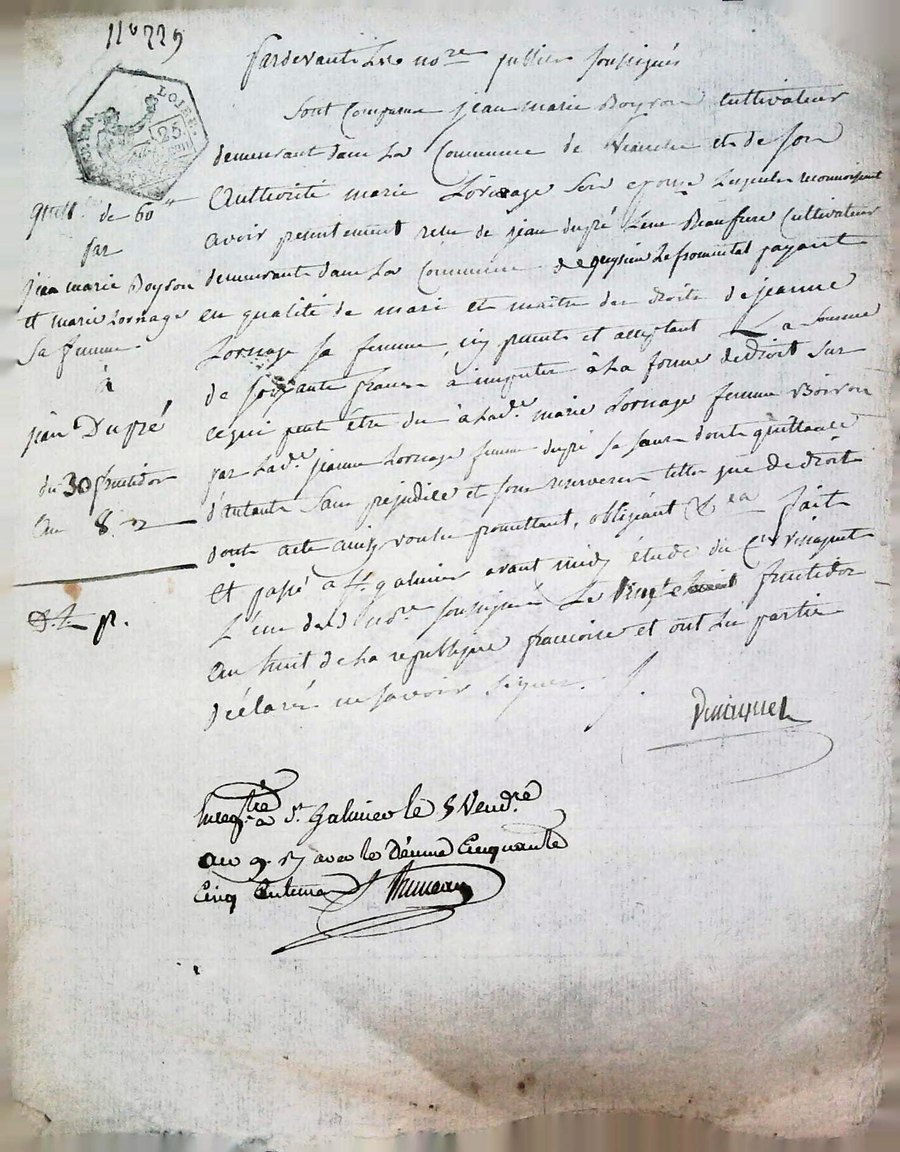 Pardevant Les no.re publics soussignés
Sont Comparu jean marie Boyron Cultivateur
demeurant dans La Commune de et de son
Authorité marie Lornage Son epouse Lesquels reconnoissent
avoir presentement recu de jean dupré Cultivateur
demeurant dans La Commune de grezieu Le fromental payant
en qualité de mari et maitre des droits de jeanne
Lornage sa femme, icy presente et acceptant La Somme
de soixante francs a imputer à La forme de droit sur
ce qui peut être du à Lad.e marie Lornage femme Boiron
par Lad.e jeanne Lornage femme dupré sa sœur dont quittance
d'autant Sans prejudice et sous reserves telles que de droit
dont acte ainsy voulu promettant, obligeant & fait
et passé a s.t galmier avant midy étude du C.en
L'un des d. no.res soussignés Le fructidor
an huit de La republique francoise et ont Les parties
déclaré ne savoir signer.
11 b 229
LOIRE.
25
quitt. de 60
par
jean marie Boyron
et marie Lornage
sa femme.
à
jean Dupré
du 30 fructidor
an 8.
Enreg.tré a S.t Galmier le 5 Vend.re
an 9. avec le Décime Cinquante
Cinq Centimes